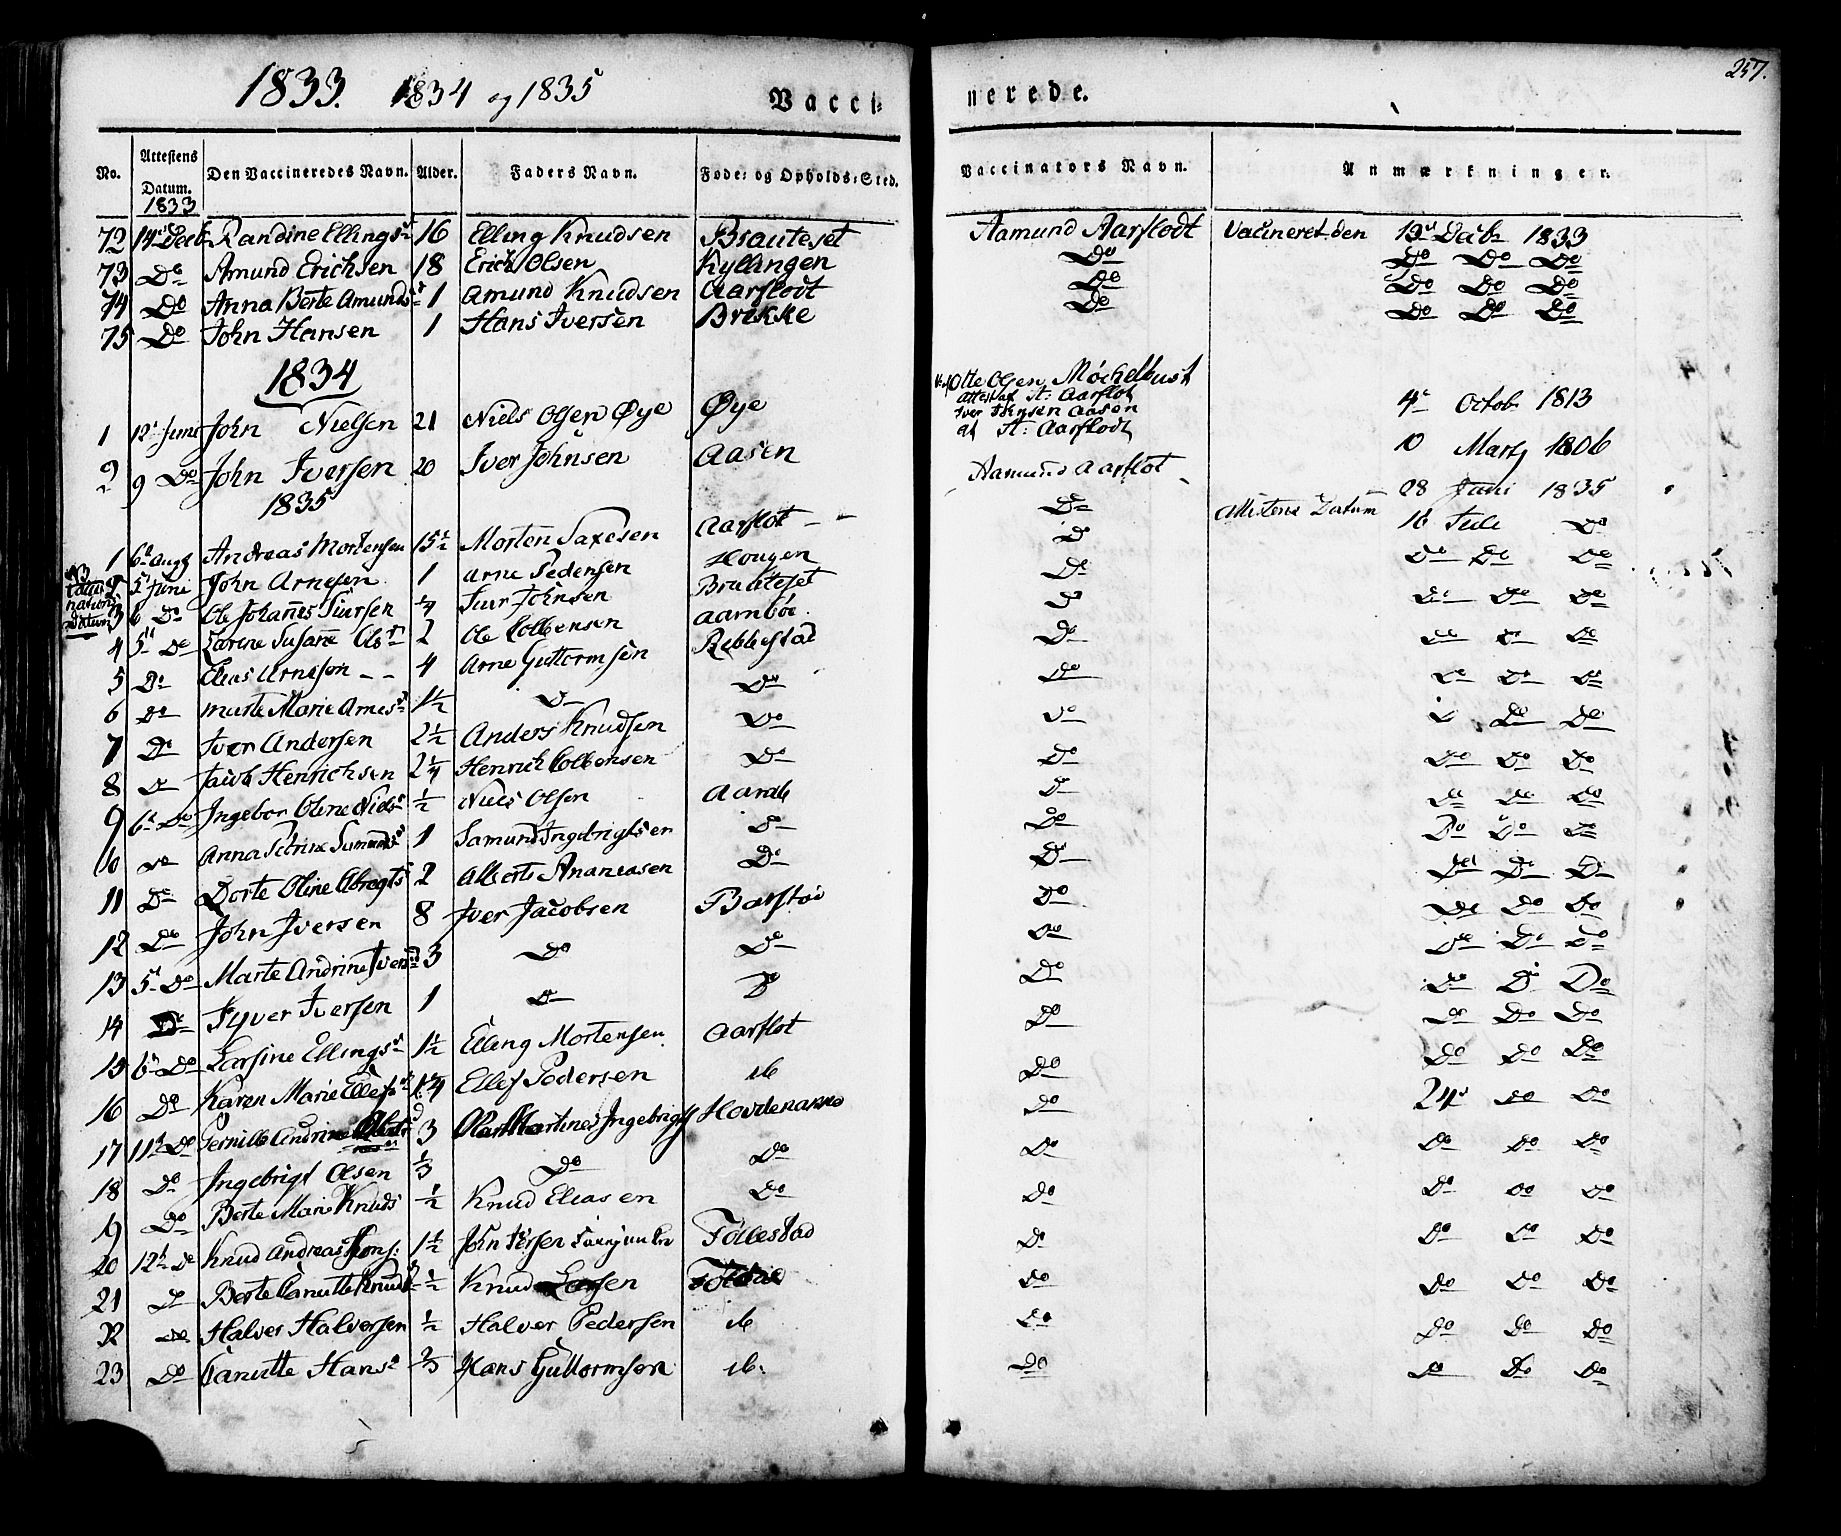 1833. 1834 og 1835 Vacci- nerede. 257.
No. Attestens Datum. 1833 Den Vaccineredes Navn. Alder. Faders Navn. Føde- og Opholds-Sted. Vaccinators Navn. Anmærkninger.
72 14d Decb Randine Ellingsd 16 Elling Knudsen Brauteset Aamund Aarflodt Vaccineret den 13d Decb 1833
73 Do Amund Erichsen 18 Erich Olsen Kyllingen Do Do Do Do
74 Do Anna Berte Amundsd 1 Amund Knudsen Aarflodt Do Do Do Do
75 Do John Hansen 1 Hans Iversen Brekke Do Do Do Do
1834
1 12t Juni John Nielsen 21 Niels Olsen Øye Øye Otte Olsen Møchelbust attest af A: Aarflot 4e Octob 1813
2 9 Do John Iversen 20 Iver Johnsen Aasen Iver Johnsen Aasen at A: Aarflodt 10 Marts 1806
1835
1 6t Augs Andreas Mortensen 15 1/2 Morten Saxesen Aarflot Aamund Aarflot 28 Juni 1835
2 5t Juni John Arnesen 1 Arne Pedersen Hougen Do Attestens Datum 16 Juli Do
3 6 Do Ole Johannes Iversen 1/4 Iver Johnsen Brauteset Do Do Do Do
4 5t Do Lorine Susane Olsd 2 Ole Colbensen Aarnbøe Do Do Do Do
5 Do Elias Arneson 4 Arne Guttormsen Rebbestad Do Do Do Do
6 Do Marte Marie Arnesd 1 1/2 Do Do Do Do Do Do
7 Do Iver Andersen 2 1/2 Anders Knudsen Do Do Do Do
8 Do Jacob Henrichsen 2 1/4 Henrich Colbensen Do Do Do Do Do
9 6t Do Ingebor Oline Nielsd 1/2 Niels Olsen Aarab Do Do Do Do
10 Do Anna Petrine 1 Samund Ingebrigtsen Do Do Do Do Do
11 Do Dorte Oline 2 Albert Ananiasen Do Do Do Do Do
12 Do John Iversen 8 Iver Jacobsen Barstad Do Do Do Do
13 5t Do Marte Andrine Iversd 3 Do Do Do Do Do Do
14 Do Syver Iversen 1 Do Do Do Do Do Do
15 6t Do Larsine Ellingsd 1 1/2 Elling Mortensen Aarflot Do Do Do Do
16 Do Karen Marie Ellefsd 1 1/4 Ellef Pedersen ib Do Do Do Do
17 11t Do Pernille Andrine 3 Martines Ingebrigts Hovdenakke Do 24d Do Do
18 Do Ingebrigt Olsen 1/3 Do Do Do Do Do Do
19 Do Berte Marie Knuds 1/2 Knud Eliasen Do Do Do Do Do
20 12t Do Knud Andreas Johns: 1 1/2 John Føllestad Do Do Do Do
21 Do Berte Canutte Knudsd 1/2 Knud Larsen Do Do Do Do
22 Do Halver Halversen 1/2 Halver Pedersen ib Do Do Do Do
23 Do Canutte Hansd 2/3 Hans Guttormsen ib: Do Do Do Do